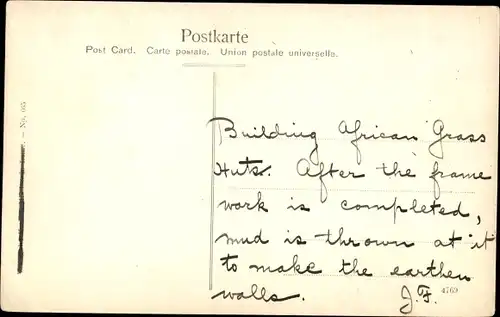 Postkarte
Post Card. Carte postale. Union postale universelle.
Building African Grass
Huts. After the frame
work is completed,
mud is thrown at it
to make the earthen
walls. J.F. 4769